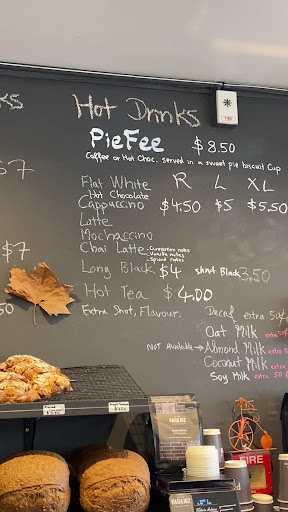 Hot Drinks
PieFee $8.50
Coffee or Hot Choc. served in a sweet pie biscuit Cup
Flat White R L XL
Hot Chocolate
Cappuccino $4.50 $5 $5.50
Latte
Mochaccino
Chai Latte - Cinnamon notes
- Vanilla notes
- Spiced notes
Long Black $4 short Black 3.50
Hot Tea $4.00
Extra Shot, Flavour. Decaf extra 50¢
Oat Milk extra 50¢
NOT Available → Almond Milk extra
Coconut Milk extra
Soy Milk extra 50¢
ks
$7
$7
50
FIRE